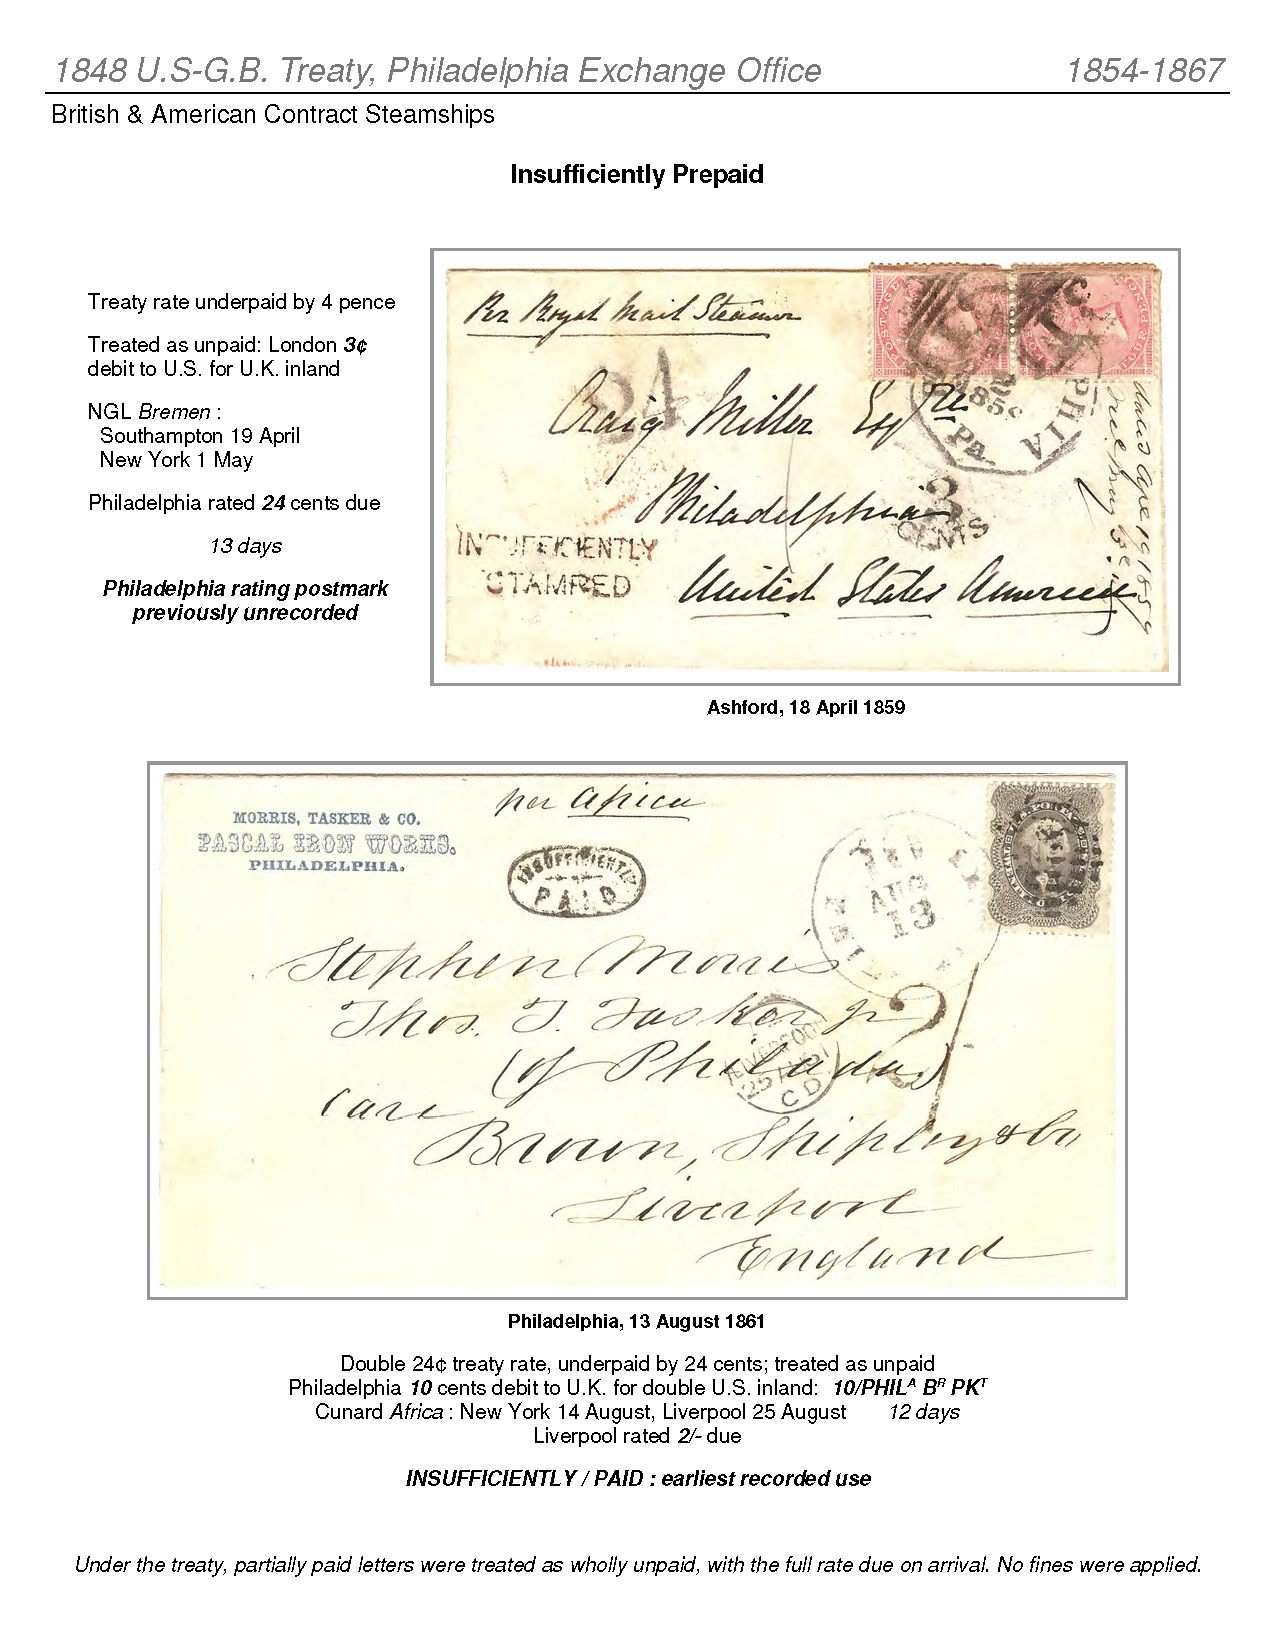 1848 U.S-G.B. Treaty, Philadelphia Exchange Office 1854-1867
British & American Contract Steamships
Insufficiently Prepaid
Treaty rate underpaid by 4 pence
Treated as unpaid: London 3¢
debit to U.S. for U.K. inland
NGL Bremen :
Southampton 19 April
New York 1 May
Philadelphia rated 24 cents due
13 days
Philadelphia rating postmark
previously unrecorded
Per Royal Mail Steamer
24
Craig Miller Esqre
Philadelphia
United States America
INSUFFICIENTLY
STAMPED
3
CENTS
Pa.
Ashford, 18 April 1859
MORRIS, TASKER & CO.
PASCAL IRON WORKS.
PHILADELPHIA.
per Africa
INSUFFICIENTLY
PAID
AUG
13
Stephen Morris
Thos. T. Tasker Jr
(of Philada)
LIVERPOOL
25 AU 61
CD
2/
Care
Brown, Shipley & Co
Liverpool
England
Philadelphia, 13 August 1861
Double 24¢ treaty rate, underpaid by 24 cents; treated as unpaid
Philadelphia 10 cents debit to U.K. for double U.S. inland: 10/PHILᴬ Bᴿ PKᵀ
Cunard Africa : New York 14 August, Liverpool 25 August 12 days
Liverpool rated 2/- due
INSUFFICIENTLY / PAID : earliest recorded use
Under the treaty, partially paid letters were treated as wholly unpaid, with the full rate due on arrival. No fines were applied.